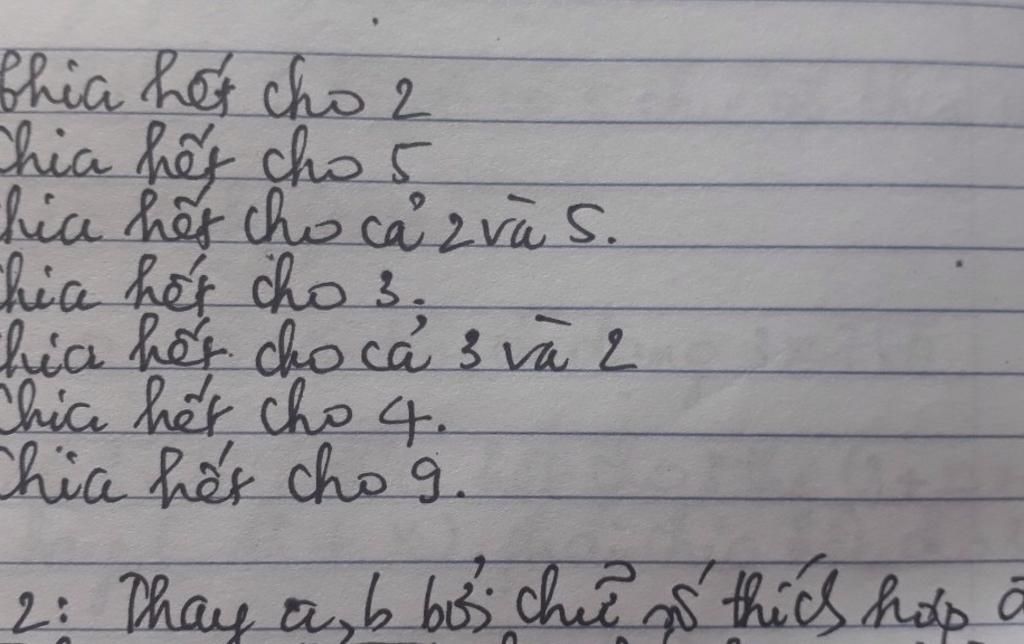 Chia hết cho 2
Chia hết cho 5
hia hết cho cả 2 và 5.
hia hết cho 3.
hia hết cho cả 3 và 2
Chia hết cho 4.
Chia hết cho 9.
2: Thay a, b bởi chữ số thích hợp